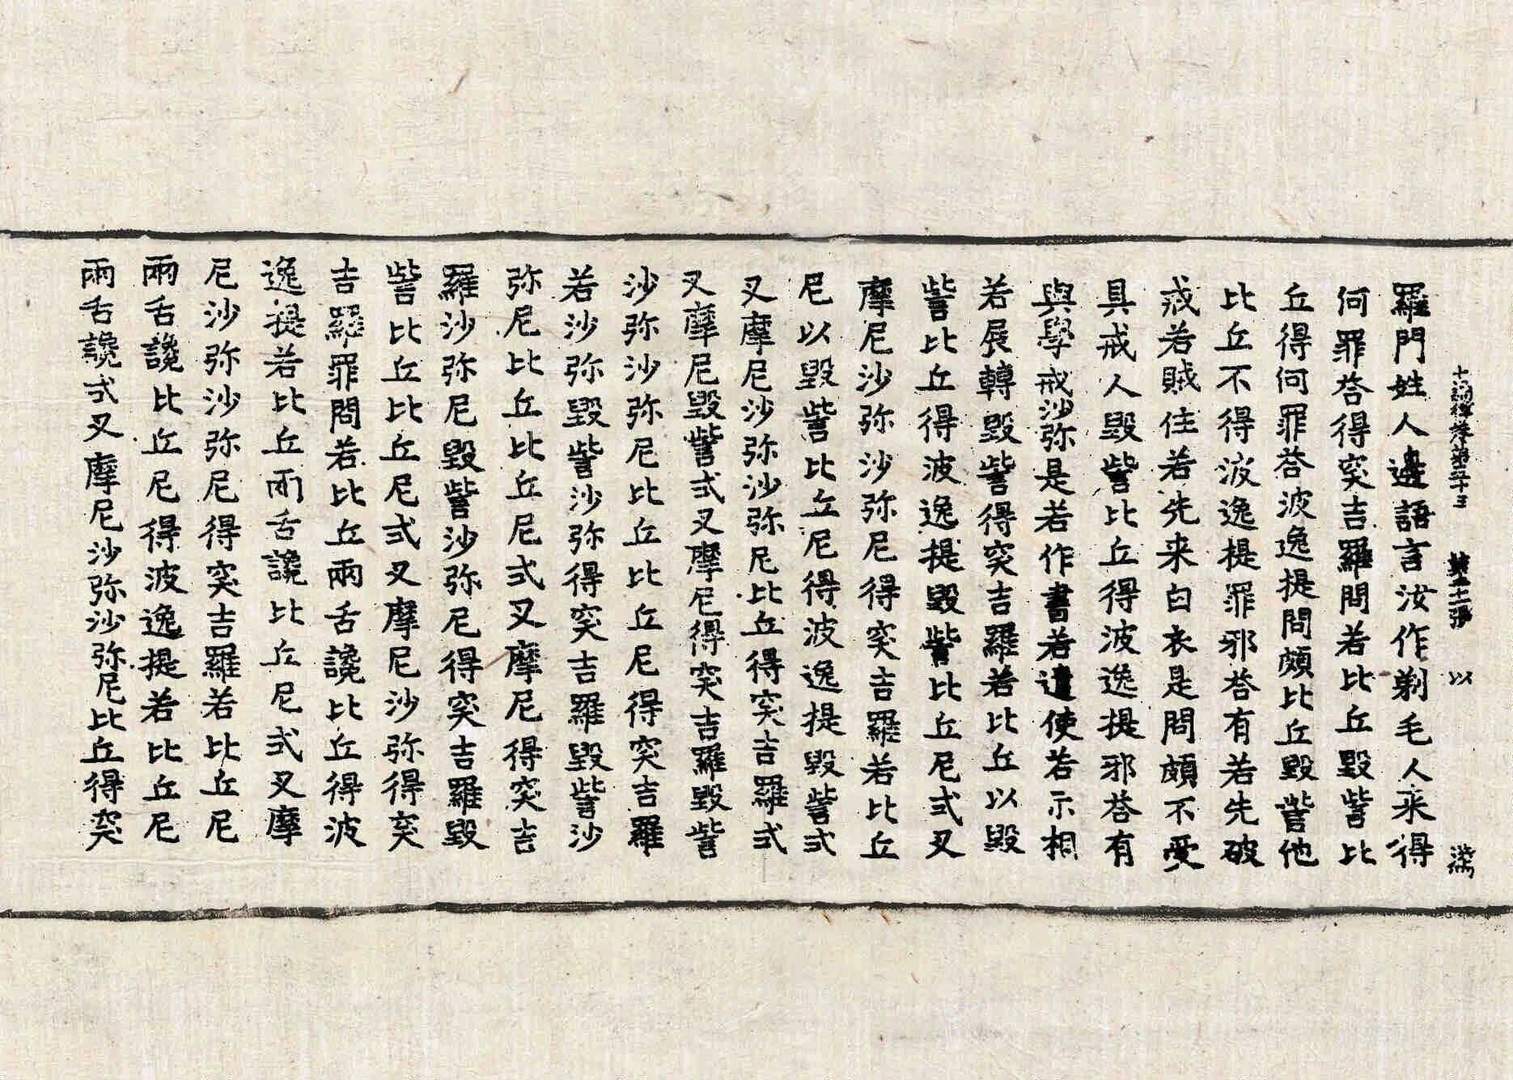 十誦律 第五十三 以
羅門姓人邊語言汝作剃毛人来得
何罪荅得突吉羅問若比丘毀訾比
丘得何罪荅波逸提問頗比丘毀訾他
比丘不得波逸提罪邪荅有若先破
戒若賊住若先来白衣是問頗不受
具戒人毀訾比丘得波逸提邪荅有
與學戒沙弥是若作書若遣使若示相
若展轉毀訾得突吉羅若比丘以毀
訾比丘得波逸提毀訾比丘尼式叉
摩尼沙弥沙弥尼得突吉羅若比丘
尼以毀訾比丘尼得波逸提毀訾式
叉摩尼沙弥沙弥尼比丘得突吉羅式
叉摩尼毀訾式叉摩尼得突吉羅毀訾
沙弥沙弥尼比丘比丘尼得突吉羅
若沙弥毀訾沙弥得突吉羅毀訾沙
弥尼比丘比丘尼式叉摩尼得突吉
羅沙弥尼毀訾沙弥尼得突吉羅毀
訾比丘比丘尼式叉摩尼沙弥得突
吉羅罪問若比丘兩舌讒比丘得波
逸提若比丘兩舌讒比丘尼式叉摩
尼沙弥沙弥尼得突吉羅若比丘尼
兩舌讒比丘尼得波逸提若比丘尼
兩舌讒式叉摩尼沙弥沙弥尼比丘得突